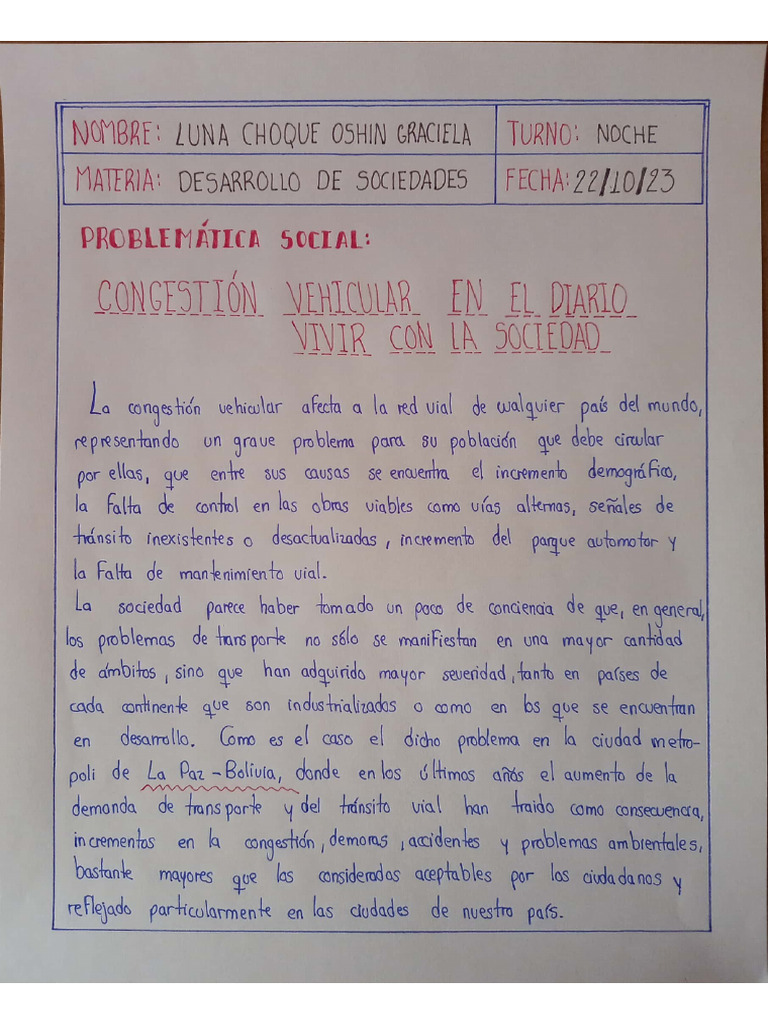 NOMBRE: LUNA CHOQUE OSHIN GRACIELA TURNO: NOCHE
MATERIA: DESARROLLO DE SOCIEDADES FECHA: 22/10/23
PROBLEMÁTICA SOCIAL:
CONGESTIÓN VEHICULAR EN EL DIARIO
VIVIR CON LA SOCIEDAD
La congestión vehicular afecta a la red vial de cualquier país del mundo,
representando un grave problema para su población que debe circular
por ellas, que entre sus causas se encuentra el incremento demográfico,
la falta de control en las obras viables como vías alternas, señales de
tránsito inexistentes o desactualizadas, incremento del parque automotor y
la falta de mantenimiento vial.
La sociedad parece haber tomado un poco de conciencia de que, en general,
los problemas de transporte no sólo se manifiestan en una mayor cantidad
de ámbitos, sino que han adquirido mayor severidad, tanto en países de
cada continente que son industrializados o como en los que se encuentran
en desarrollo. Como es el caso el dicho problema en la ciudad metro-
poli de La Paz-Bolivia, donde en los últimos años el aumento de la
demanda de transporte y del tránsito vial han traido como consecuencia,
incrementos en la congestión, demoras, accidentes y problemas ambientales,
bastante mayores que las considerados aceptables por los ciudadanos y
reflejado particularmente en las ciudades de nuestro país.